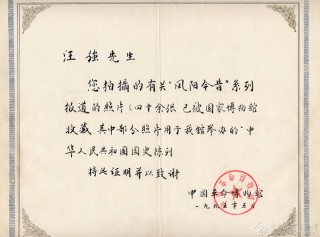 汪強先生
您拍攝的有关“凤阳今昔”系列
报道的照片(四十余张)已被国家博物馆
收藏,其中部分照片用于我馆举办的“中
华人民共和国国史陈列
特此证明并以致谢
中国革命博物馆
一九九五年五月